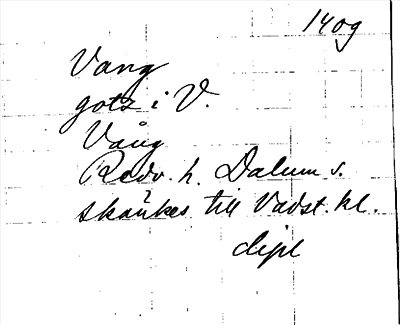 1409
Vang
gotz i V.
Vång
Redv. h. Dalum s.
skänkes till Vadst. kl.
dipl